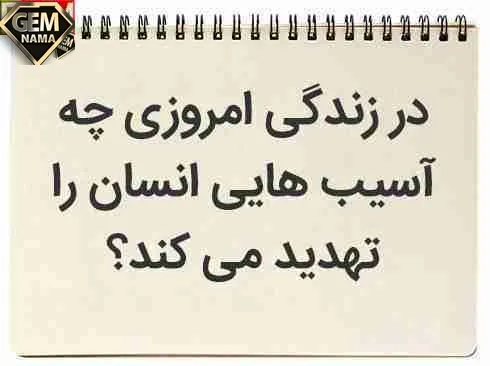 GEM
NAMA
در زندگی امروزی چه
آسیب هایی انسان را
تهدید می کند؟